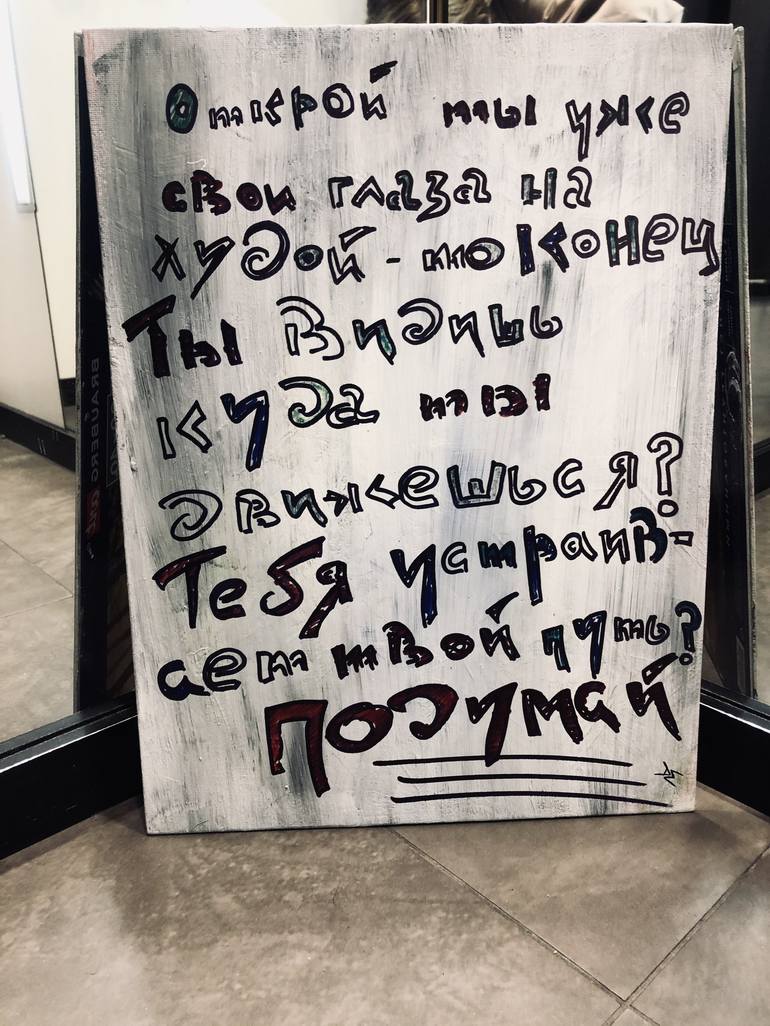 Открой ты уже
свои глаза на
худой - то конец
Ты видишь
куда ты
движешься?
Тебя устраив-
ает твой путь?
подумай